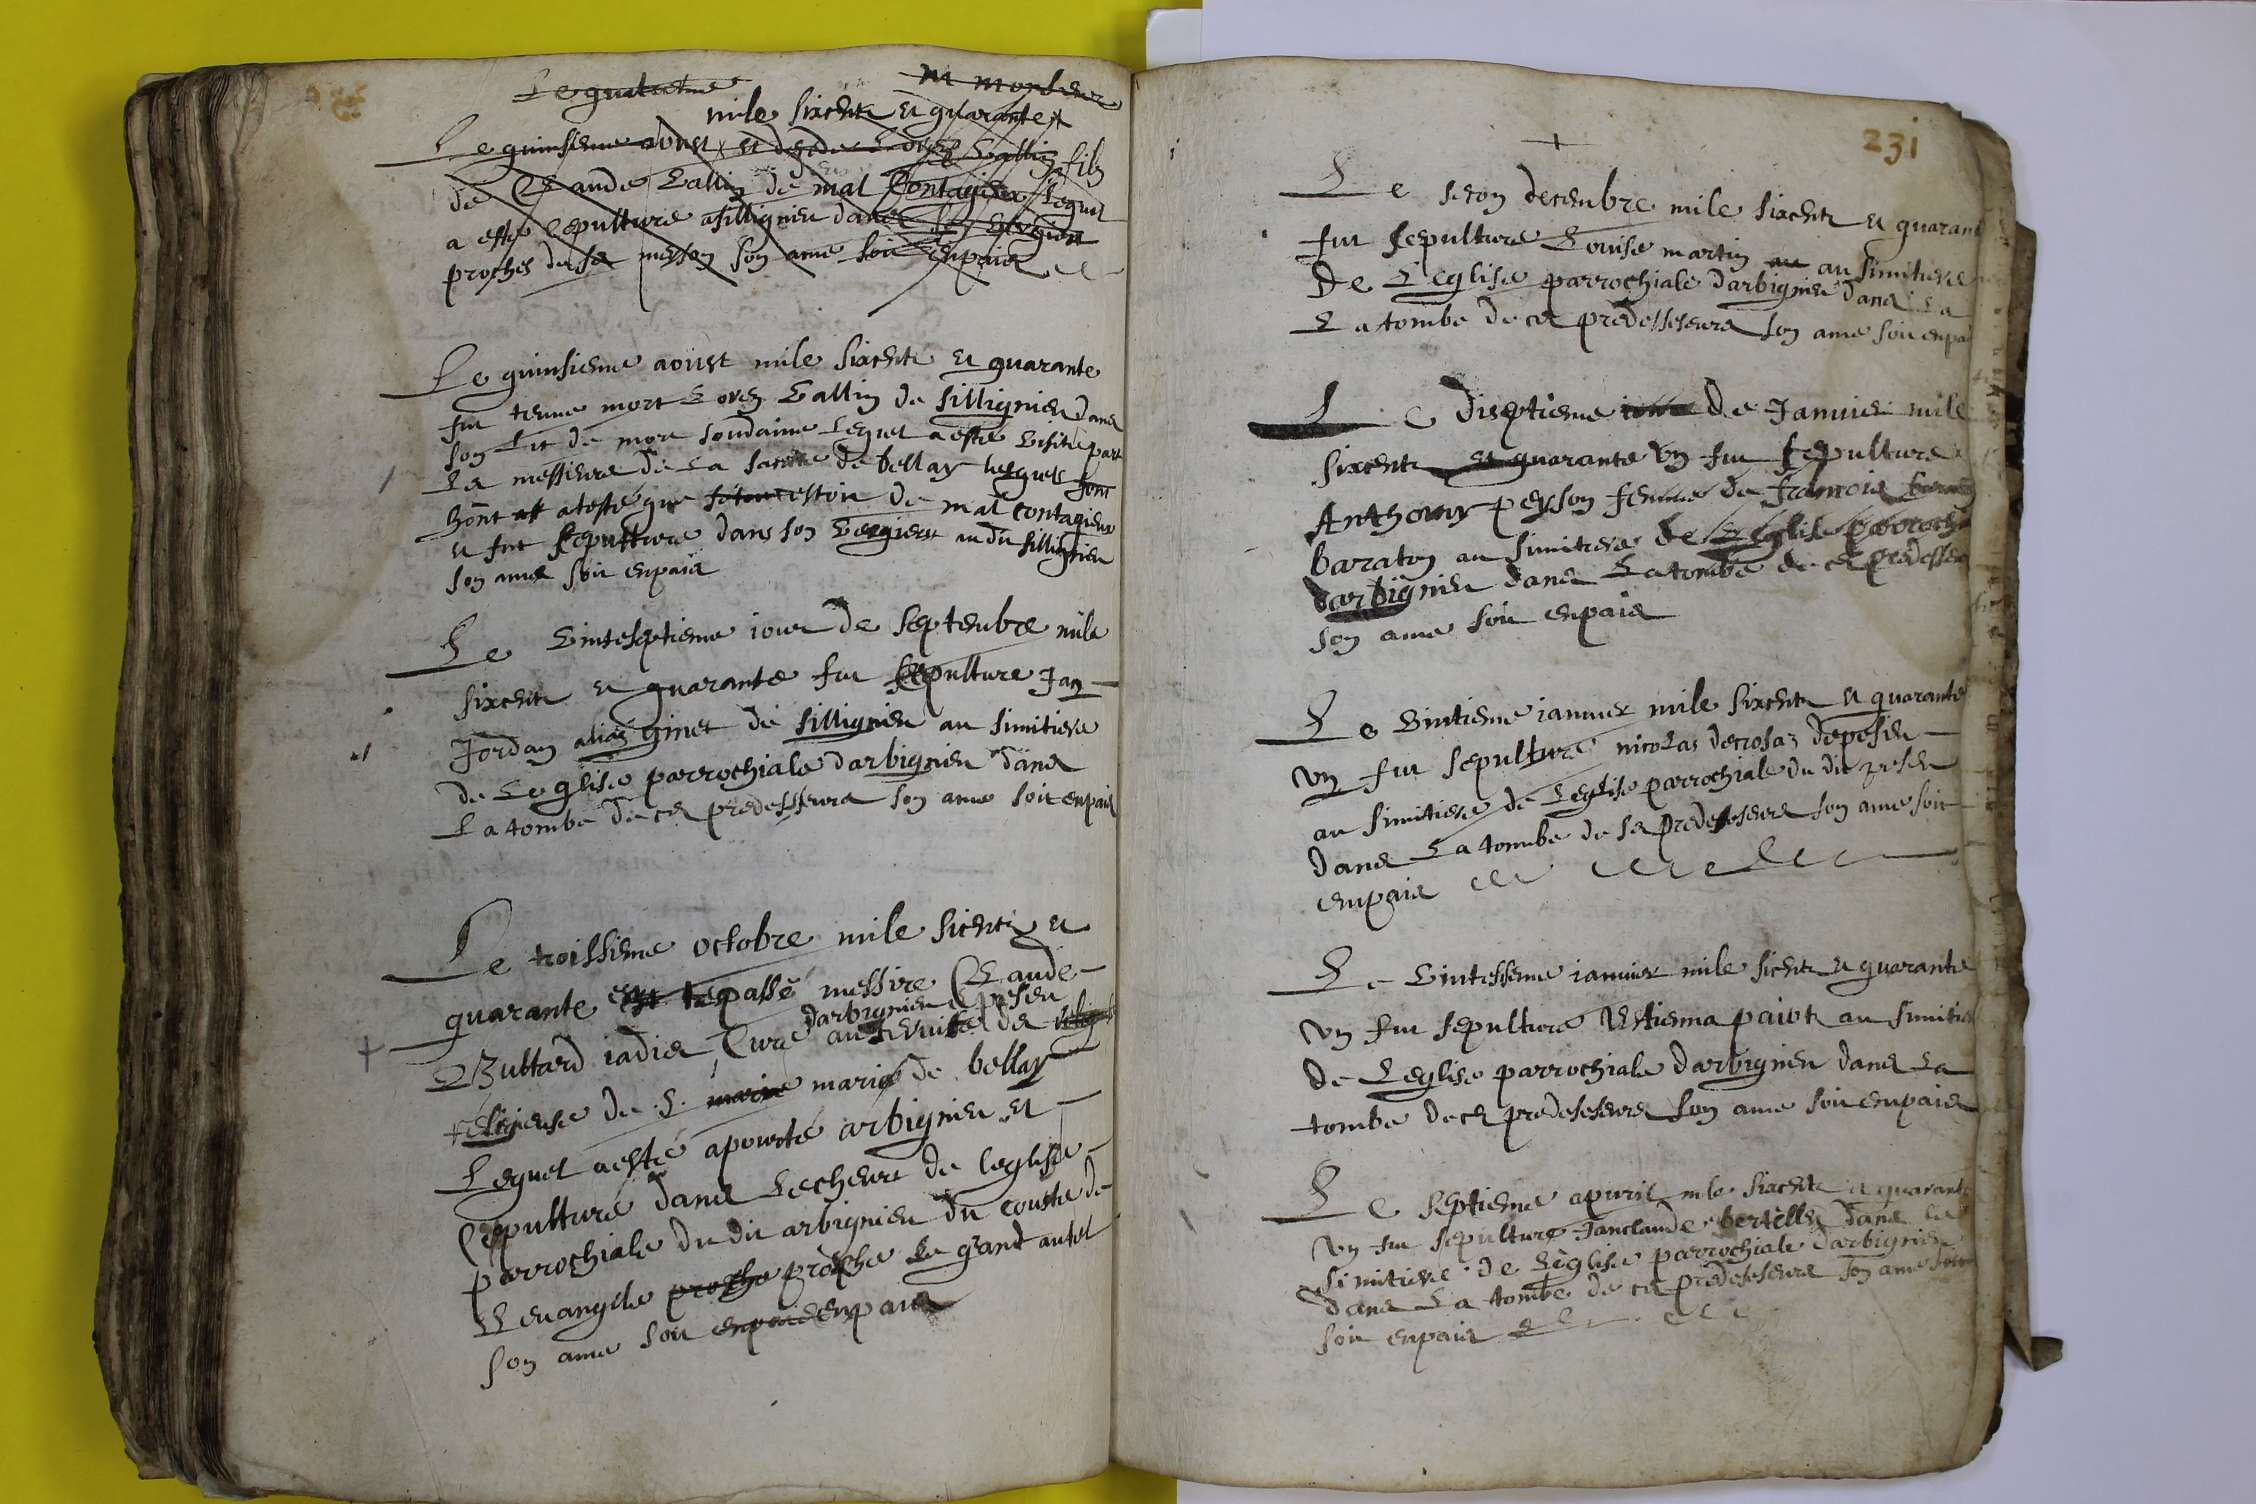 Le quatrieme
m monsieur
mile sixcentz et quarante
Le quinsieme aoust est decede Loren Gallin filz
de Claude Gallin de mal Contagieux lequel
a esté sepulture a sillignieu dans son vergier
proches de sa meson son ame soit enpaix
Le quinsieme aoust mile sixcentz et quarante
fut treuve mort Loren Gallin de sillignieu dans
son Lit de mort soudaine Lequel a esté visité par
Les messieurs de La santé de bellay lesquels
hont atesté que estoit de mal contagieux
et fut sepulture dans son vergiert au du sillignieu
son ame soit enpaix
Le vinteseptieme iour de septenbre mile
sixcentz et quarante fut sepulture Jan
Jordan alias ginet de sillignieu au simitiere
de Leglise parrochiale darbignieu dans
La tombe de ces predessseurs son ame soit enpaix
Le troissieme octobre mile sicentz et
quarante est trepassé messire Claude
darbignieu et peseu
Buttard iadies Cure au servise de
religieuse de S. marie marie de bellay
Lequel a esté apourté arbignieu et
sepulturé dans Le cheurt de leglise
parrochiale du dit arbignieu du couste de
Levangele proche proche Le grand autel
son ame soit enpaix enpaix
231
Le secon decenbre mile sixcentz et quarant
fut sepulture Louise martin au au simitiere
De Leglise parrochiale darbignieu dans La
La tombe de ces predesseseurs son ame soit enpai
Le diseptieme de Janvier mile
sixcentz et quarante un fut sepulture
Anthomy peyson femme de francois
baraton au simitiere de Leglise parrochi
darbignieu dans La tombe de ces predesse
son ame soit enpaix
Le vintieme ianvier mile sixcentz et quarante
un fut sepulture nicolas decrosaz depeseu
au simitiere de Leglise parrochiale du dit peseu
dans La tombe de ses predesseseurs son ame soit
enpaix
Le vintesseme ianvier mile sicentz et quarante
un fut sepulture Estienna paivt au simitie
de Leglise parrochiale darbignieu dans La
tombe de ces predeseseurs son ame soit enpaix
Le septieme apvril mile sixcentz et quarante
un fut sepulture Janclaude bertellet dans le
simitiere de Leglise parrochiale darbignieu
dans La tombe de ces predeseseurs son ame soit
soit enpaix